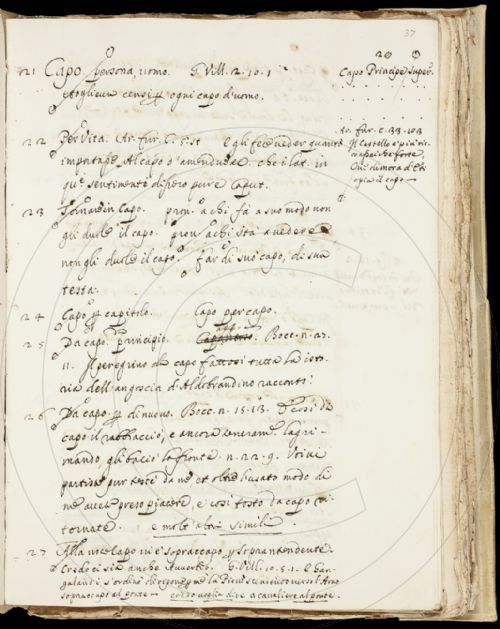 37
21 Capo. persona, uomo. G. Vill. 2. 10. 1
censi ogni capo d'uomo.
20
Capo Principe, Super.
22 Per Vita. Ar. fur. C. 5. st e gli fece veder quanto
importa al capo d'amendue. che i lat. in
sentimento dissero pure Caput.
Ar. fur. C. 33. 103
Il Castello è più ric
co assai che forte,
Ove dimora d'Eti
opia il capo
23 Tornare in Capo. prov. a chi fà a suo modo non
gli duole il capo. prov. a chi stà a vedere
non gli duole il capo. far di suo capo, di sua
testa.
24 Capo capitolo. Capo per capo.
25 Da capo. principio. Bocc. n. 27.
11. Il peregrino da capo fattosi tutta la isto-
ria dell'angoscia d'Aldobrandino raccontò.
26 Da capo di nuovo. Bocc. n. 15. 13. E così da
capo il rabbracciò, e ancora teneram. lagri-
mando, gli baciò la fronte. n. 22. 9.
da me et oltre l'usato modo di
me avete preso piacere, e così tosto da capo ri
tornate. e molt'altri simili.
27 Alla voce Capo vi è sopraccapo soprantendente.
Credo ci sia anche Avverbio. G. Vill. 10. 5. 1. E Gan-
galandi, s'ordinò
sopraccapo al ponte credo voglia dire a cavaliere al ponte.